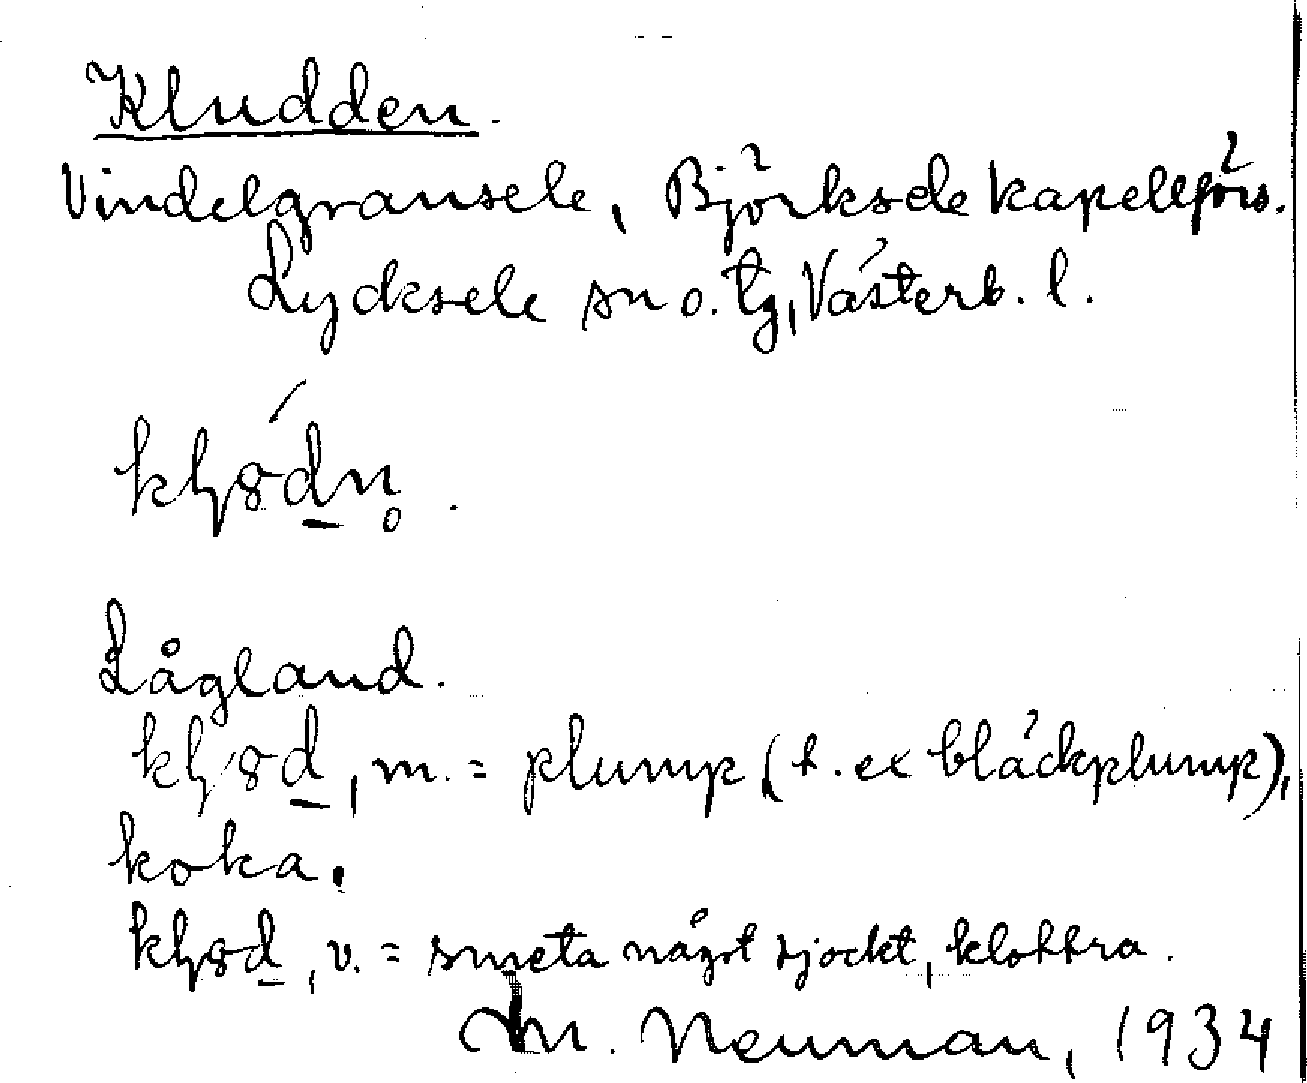 Kludden.
Vindelgransele, Björksele kapellförs.
Lycksele sn o. tg, Västerb. l.
Lågland.
, m. = plump (t. ex bläckplump),
koka.
, v. = smeta något tjockt, klottra.
Neuman, 1934